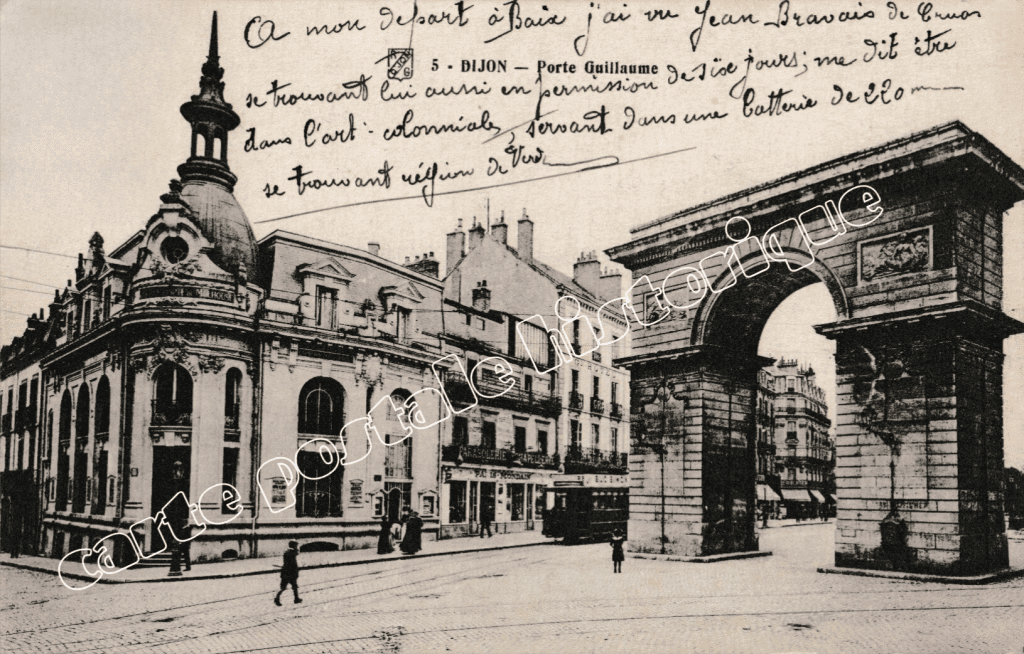 A mon depart à Baix j'ai vu Jean Bravais de Cruas
5 - DIJON — Porte Guillaume
se trouvant lui aussi en permission de six jours; me dit être
dans l'art. colonniale, servant dans une batterie de 220
se trouvant région de Verd
carte postale historique